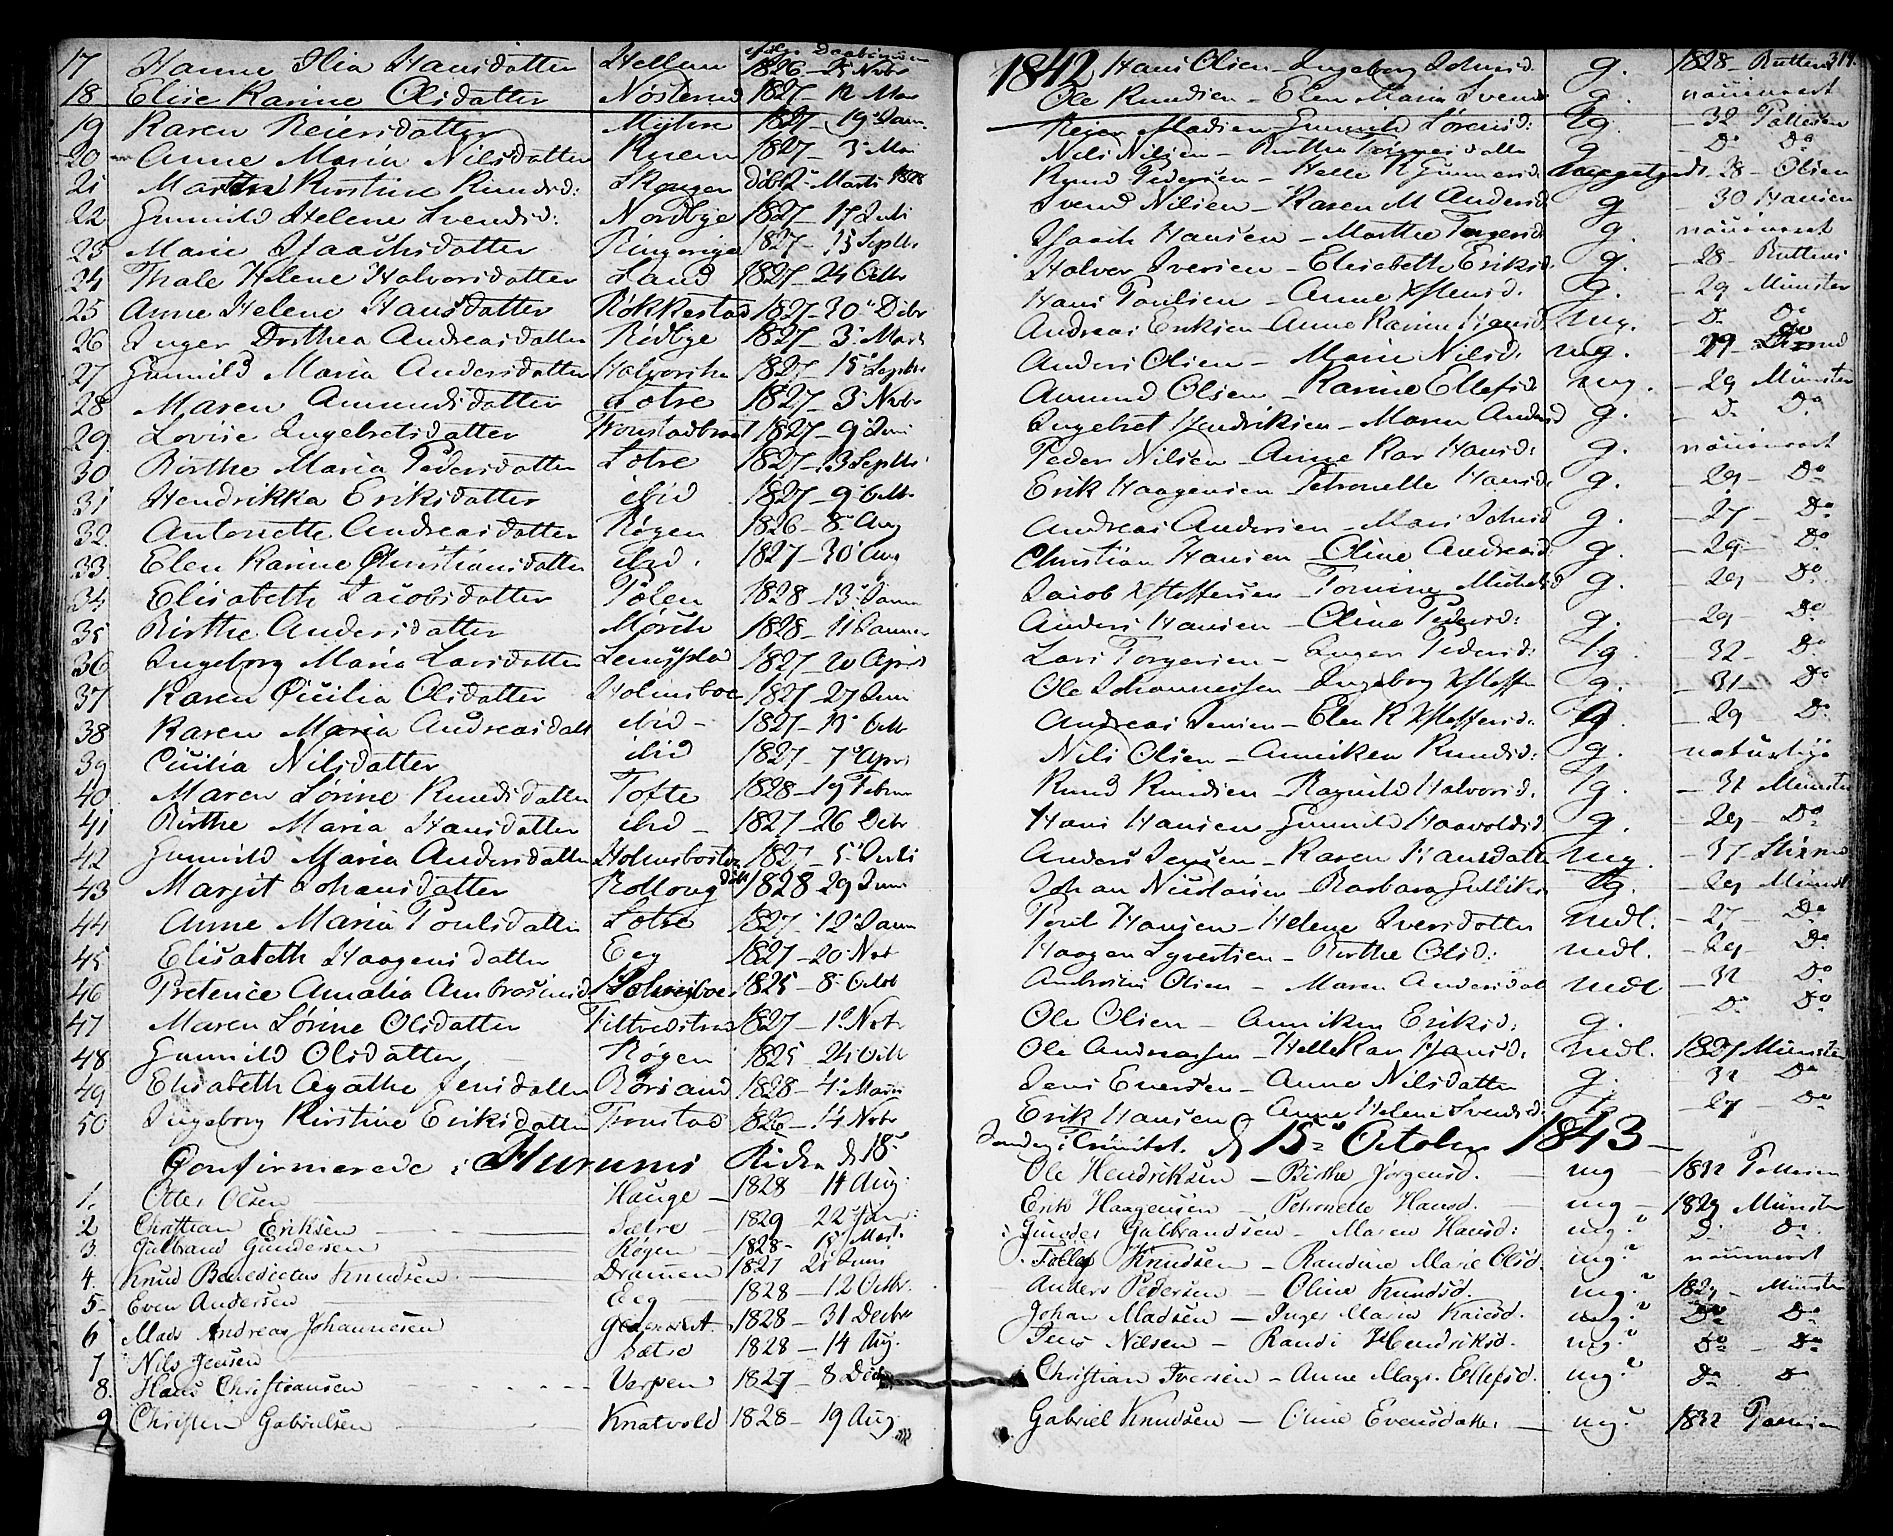 17 Hanne Ilia Hansdatter Hellum 1826 - 25 Novbr
18 Elise Karine Olsdatter Nøsterud 1827 - 12 Mai
19 Karen Reiersdatter 1827 - 19 Janr
20 Anne Maria Nilsdatter 1827 - 3 Mai
21 Martha Kirstine Knudsd: Skouger døbt 2 Marts 1828
22 Gunnild Helene Svendsd: Nordbye 1827 - 17 Juli
23 Marie Isaachsdatter Ringerige 1827 - 15 Septbr
24 Thale Helene Halvorsdatter Sand 1827 - 24 Octbr
25 Anne Helene Hansdatter Røkkestad 1827 - 30 Debr
26 Inger Dorthea Andreasdatter Rødbye 1827 - 3 Marts
27 Gunnild Maria Andersdatter 1827 - 15 Septbr
28 Maren Amundsdatter Sætre 1827 - 3 Novbr
29 Lovise Ingebretsdatter 1827 - 9 Juni
30 Birthe Maria Pedersdatter Sætre 1827 - 13 Septbr
31 Hendrikka Eriksdatter ibid 1827 - 9 Octbr
32 Antonette Andreasdatter Røgen 1826 - 8 Aug
33 Elen Karine Christiansdatter ibid. 1827 - 30 Aug
34 Elisabeth Jacobsdatter Tølen 1828 - 13 Janr
35 Birthe Andersdatter Mørch 1828 - 11 Januar
36 Ingeborg Maria Larsdatter 1827 - 20 April
37 Karen Cicilia Olsdatter Holmsboe 1827 - 27 Juni
38 Karen Maria Andreasdatt ibid - 1827 - 15 Octbr
39 Cicilia Nilsdatter ibid 1827 - 7 April
40 Maren Lovine Knudsdatter Tofte 1828 - 19 Februar
41 Birthe Maria Hansdatter ibid - 1827 - 26 Debr
42 Gunnild Maria Andersdatter 1827 - 5 Juli
43 Margit Johansdatter Rolloug døbt 1828 29 Juni
44 Anne Maria Poulsdatter Sætre 1827 - 12 Janr
45 Elisabeth Haagensdatter Eeg 1827 - 20 Nov
46 Pretence Amalia Ambrosiusd Holmsboe 1825 - 8 Octob
47 Maren Lovine Olsdatter 1827 - 1 Novbr
48 Gunnild Olsdatter Røgen 1825 - 24 Octbr
49 Elisabeth Agathe Jensdatter 1828 - 4 Marts
50 Ingeborg Kirstine Eriksdatter Tronstad 1826 - 14 Novbr
Confirmerede i Hurums Kirke d 15
1. Otter Olsen Hauge - 1828 - 14 Aug:
2 Christian Eriksen Sætre - 1829 - 22 Jan:
3. Gulbrand Gundersen Røgen - 1828 - 15 Mart.
4. Knud Benedictus Knudsen Dramen 1827 21 Juni
5 - Even Andersen Eeg 1828 - 12 Octbr.
6 Mads Andreas Johannesen 1828 - 31 Decbr
7 Nils Jensen Sætre 1828 - 14 Aug.
8. Hans Christiansen Verpen 1827 - 8 Dec
9 Christen Gabrielsen Knatvold 1828 - 19 Aug
1842 Hans Olsen - Ingeborg Johnsd. g. 1828 - Ruttens 314.
Ole Knudsen - Elen Maria Svends g. nouveaut
Reier Madsen Gunnild Sørensd: tg. - 32 Pattesen
Nils Nilsen - Birthe g - Do Do
Knud Pedersen - Helle K Gunnersd. - 28 - Olsen
Svend Nilsen - Karen M Andersd g - 30 Hansen
Isaach Hansen - Marthe Torgersd g.
Halvor Iversen - Elisabeth Eriksd. g. - 28 Ruttens
Hans Poulsen - Anne g. - 29 Münster
Andreas Eriksen - Anne Karine Hansd mg. - Do Do
Anders Olsen - Marie Nilsd. mg. - 29
Amund Olsen - Karine Ellefsd mg. - 29 Münster
Ingebret Hendriksen - Maren Andersd g. - Do Do
Peder Nilsen - Anne Kar Hansd: g.
Erik Haagensen - Petronelle Hansd. g. - 29 - Do
Andreas Andersen - Mari Johnsd g. - 27 - Do
Christian Hansen - Oline Andreasd. g. - 29 - Do
Jacob Steffensen - Tomine Michelsd g. - 29 Do
Anders Hansen - Oline Pedersd: g. - 29 - Do
Lars Torgersen - Inger Pedersd: tg. - 32 - Do
Ole Johannessen - Ingeborg Steffen g. - 31 - Do
Andreas Jensen - Elen K Steffensd. g. - 29 - Do
Nils Olsen - Anniken Knudsd: g. naturlige
Knud Knudsen - Ragnild Halvorsd. tg. - 31 Münster
Hans Hansen Gunnild Haavoldsd. g. - 29 - Do
Anders Jensen - Karen Hansdatter mg. - 37
Johan Nicolaisen - Barbara Gulliks tg. - 29 Münster
Poul Hansen - Helene Iversdatter mdl. - 27 - Do
Haagen Syvertsen - Birthe Olsd: mdl. - 29 - Do
Ambrosius Olsen - Maren Andersdat mdl - 32 Do
Ole Olsen - Anniken Eriksd: g. - Do Do
Ole Andreasen - Helle Kar Hansd. mdl. 1827 Münster
Jens Evensen - Anne Nilsdatter g. - 32 Do
Erik Hansen Anne Helene Svendsd. - 27 - Do
Søndag i Trinitat. d 15 October 1843 -
Ole Hendriksen - Birthe Jørgensd. - mg - 1832 Pattesen
Erik Haagensen - Petronelle Hansd. mg - 1829 Münster
Gunder Gulbrandsen - Maren Hansd: mg. Do Do
Tollef Knudsen - Randine Marie Olsd. mg.
Anders Pedersen - Oline Knudsd. mg. 1829 - Münster
Johan Madsen - Inger Maria mg. Do Do
Jens Nilsen - Randi Hendriksd. mg. Do - Do
Christian Iversen - Anne Magr. Ellefsd. mg. Do Do
Gabriel Knudsen - Oline Evensdatter - mg. 1832 Pattesen